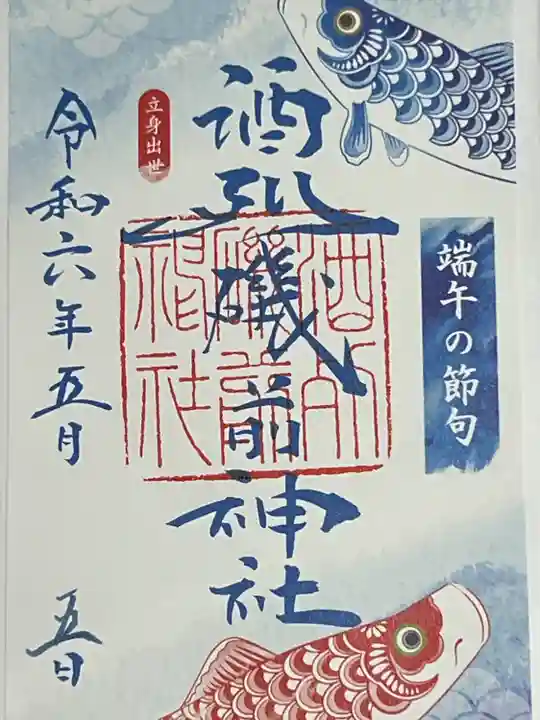 端午の節句
酒列磯前神社
酒列
磯前
神社
立身出世
令和六年五月五日